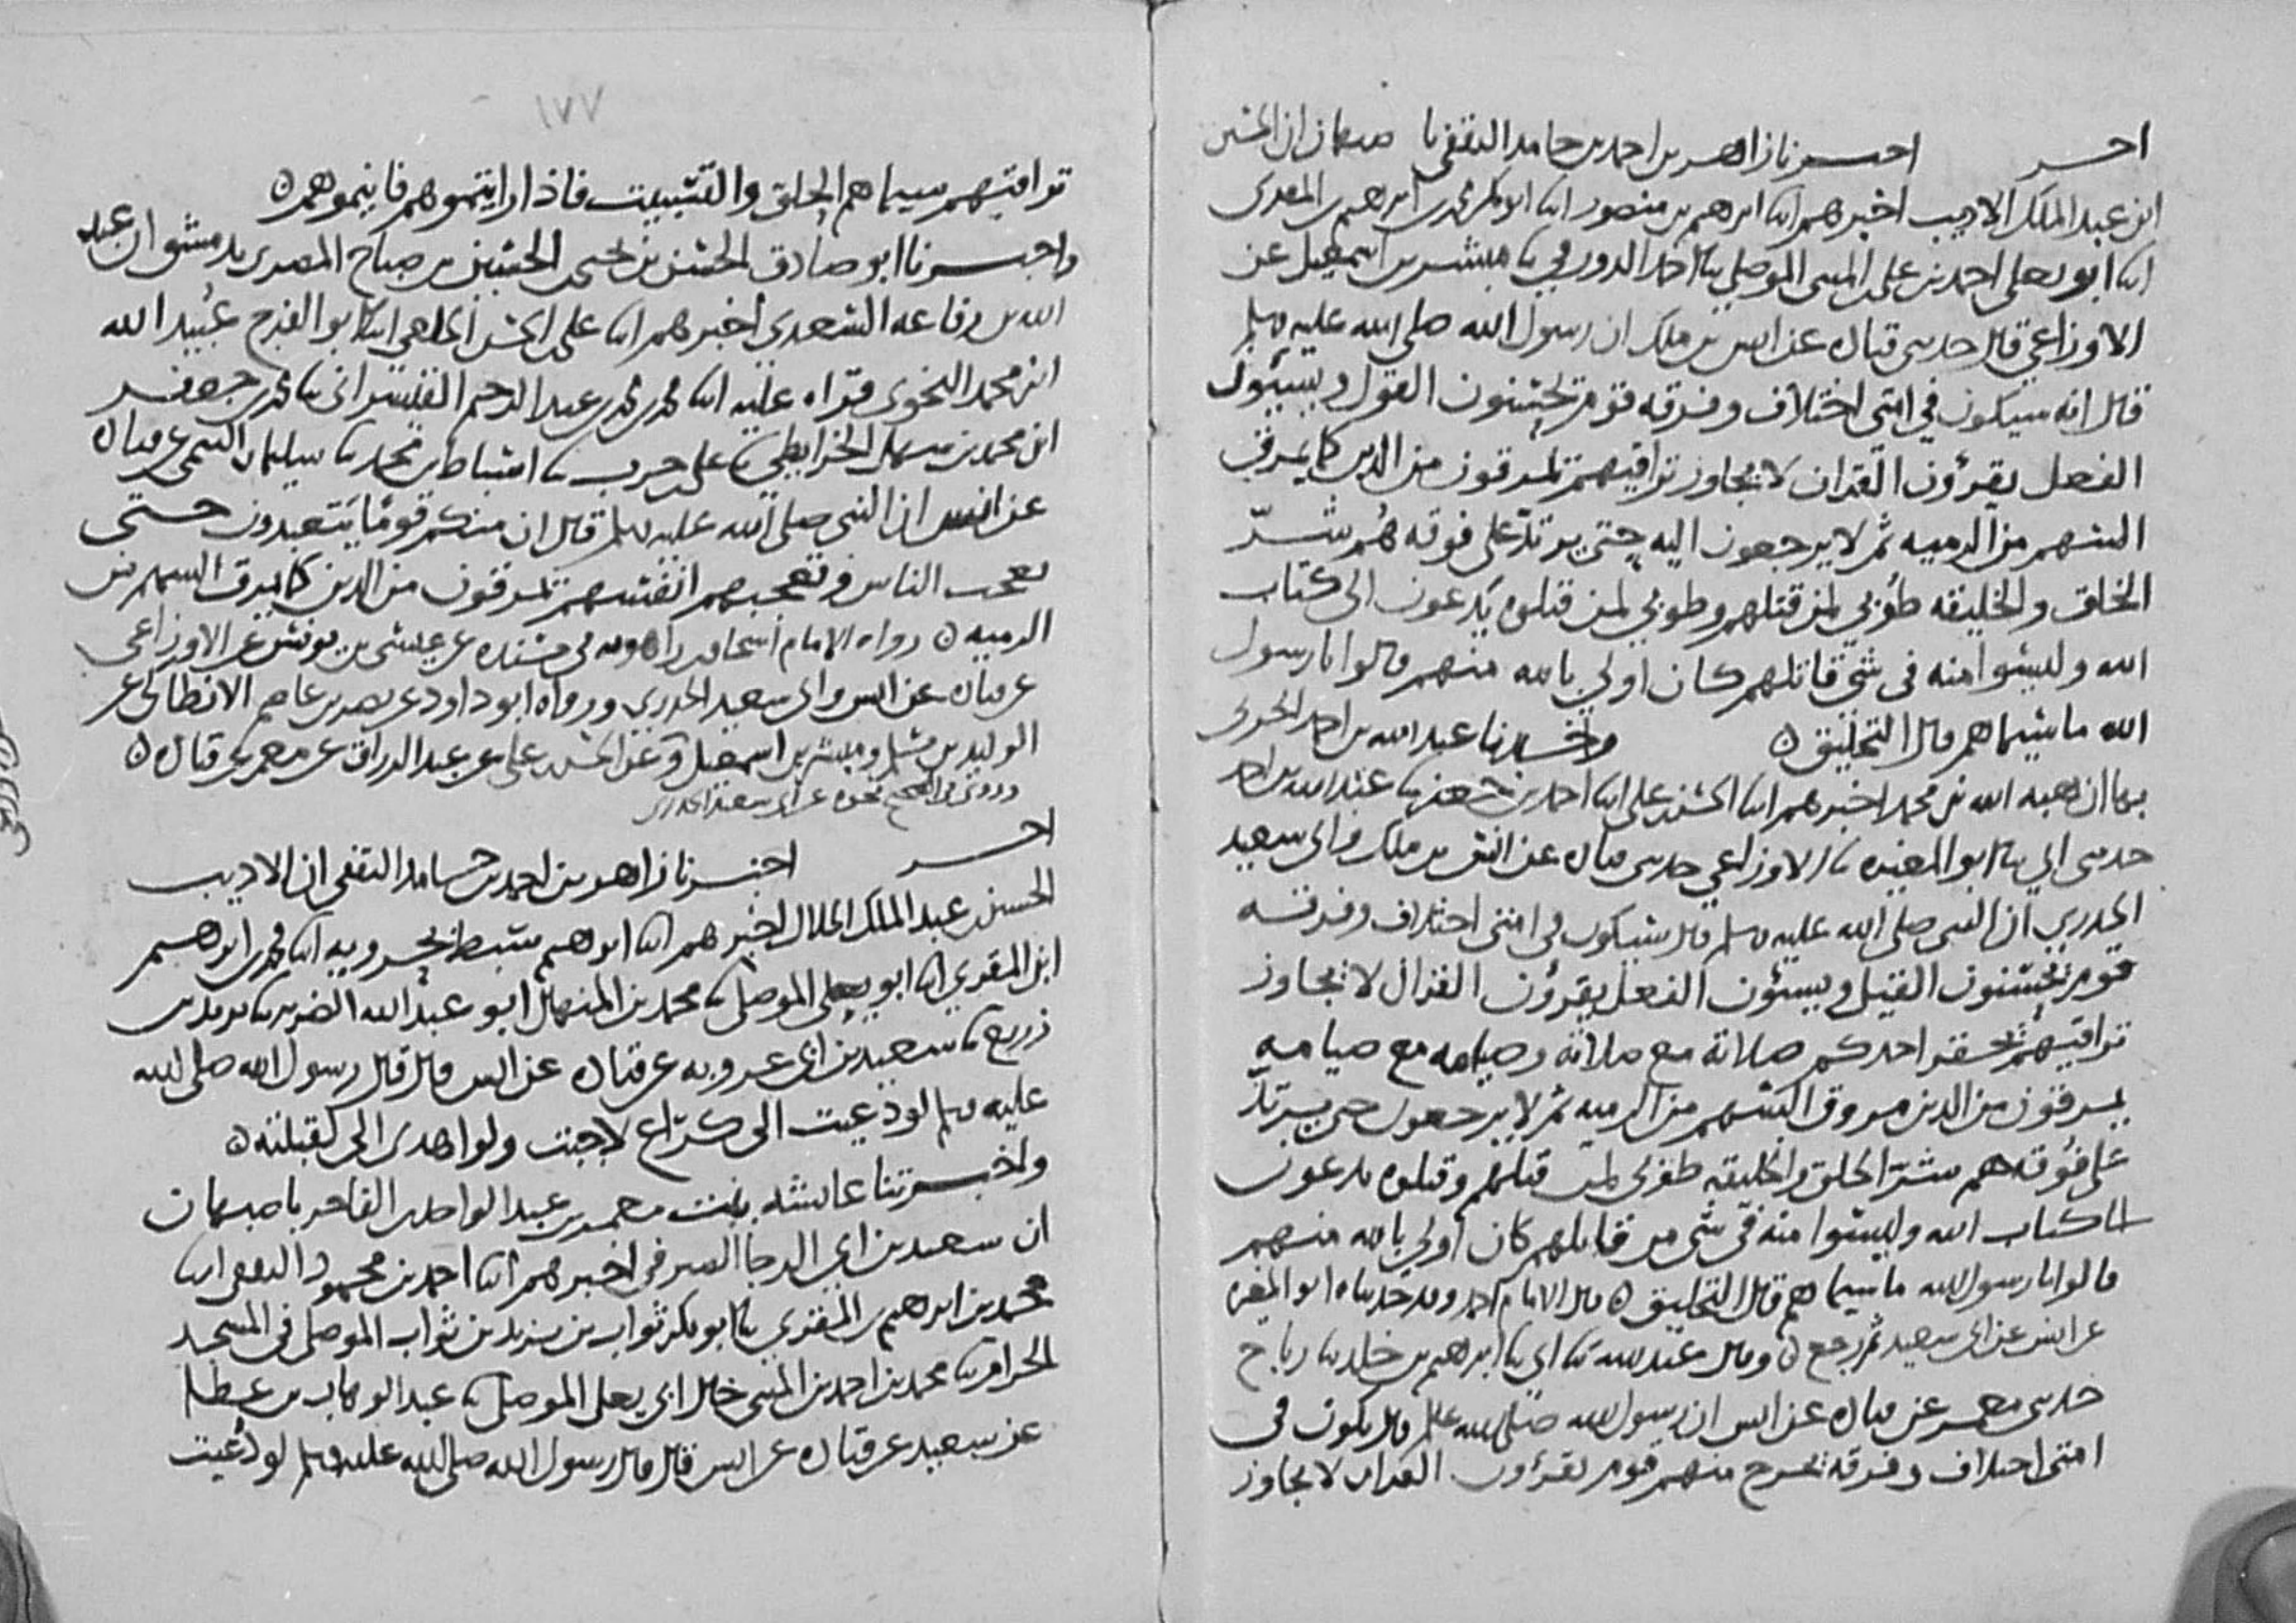 اخر اخبرنا زاهر بن احمد بن حامد الثقفي با صبهان ان الحسين
ابن عبد الملك الاديب اخبرهم ابنا ابرهيم بن منصور ابنا ابو بكر محمد بن ابرهيم بن المقرى
ابنا ابو يعلى احمد بن على بن المثنى الموصلي ثنا احمد الدورقي ثنا مبشر بن اسمعيل عن
الاوزاعي قال حدثنى قتاده عن انس بن ملك ان رسول الله صلى الله عليه وسلم
قال انه سيكون في امتى اختلاف وفرقه قوم يحسنون القول ويسيؤن
الفعل يقرؤن القران لا يجاوز تراقيهم يمرقون من الدين كما يمرق
السهم من الرميه ثم لا يرجعون اليه حتى يرتد على فوقه هم شر
الخلق والخليقه طوبي لمن قتلهم وطوبي لمن قتلوه يدعون الى كتاب
الله وليسوا منه فى شي من قاتلهم كان اولي بالله منهم قالوا يا رسول
الله ما سيماهم قال التحليق ٥ واخبرنا عبد الله بن احمد الحربى
بها ان هبه الله بن محمد اخبرهم ابنا الحسن بن على ابنا احمد بن جعفر ثنا عبد الله بن احمد
حدثنى ابي ثنا ابو المغيره ثنا الاوزاعي حدثنى قتاده عن انس بن ملك وابى سعيد
الخدري ان النبى صلى الله عليه وسلم قال سيكون فى امتى اختلاف وفرقه
قوم يحسنون القيل ويسيئون الفعل يقرؤن القران لا يجاوز
تراقيهم يحقر احدكم صلاته مع صلاته وصيامه مع صيامه
يمرقون من الدين مروق السهم من الرميه ثم لا يرجعون حتى يرتد
على فوقه هم شر الخلق والخليقه طوبى لمن قتلهم وقتلوه يدعون
الى كتاب الله وليسوا منه في شى من قاتلهم كان اولي بالله منهم
قالوا يا رسول الله ما سيماهم قال التحليق ٥ قال الامام احمد وقد حدثناه ابو المغيره
عن انس عن ابى سعيد ثم رجع ٥ وقال عبد الله ثنا ابى ثنا ابرهيم بن خلد ثنا رباح
حدثنى معمر عن قتاده عن انس ان رسول الله صلى الله عليه وسلم قال يكون فى
امتى اختلاف وفرقه يخرج منهم قوم يقرؤن القران لا يجاوز
١٧٧
تراقيهم سيماهم الحلق والتسبيت فاذا رايتموهم فانيموهم ٥
واخبرنا ابو صادق الحسن بن يحيى بن الحسين بن صباح المصرى بدمشق ان عبد
الله بن رفاعه السعدي اخبرهم ابنا على بن الحسن الخلعى ابنا ابو الفرج عبيد الله
ابن محمد النحوى قراه عليه ابنا محمد بن محمد بن عبد الرحيم القيسرانى ثنا محمد بن جعفر
ابن محمد بن سهل الخرايطي ثنا على بن حرب ثنا اسباط بن محمد ثنا سليمان التيمى عن قتاده
عن انس ان النبى صلى الله عليه وسلم قال ان منكم قوما يتعبدون حتى
يعجب الناس وتعجبهم انفسهم يمرقون من الدين كما يمرق السهم من
الرميه ٥ رواه الامام اسحاق بن راهويه في مسنده عن عيسى بن يونس عن الاوزاعى
عن قتاده عن انس وابى سعيد الخدري ورواه ابو داود عن نصر بن عاصم الانطاكى عن
الوليد بن مسلم ومبشر بن اسمعيل وعن الحسن بن على عن عبد الرزاق عن معمر عن قتاده ٥
وروى فى الصحيح نحوه عن ابى سعيد الخدرى
اخر اخبرنا زاهر بن احمد بن حامد الثقفى ان الاديب
الحسين بن عبد الملك الخلال اخبرهم ابنا ابرهيم سبط بحرويه ابنا محمد بن ابرهيم
ابن المقري ابنا ابو يعلى الموصلى ثنا محمد بن المنهال ابو عبد الله الضرير ثنا يزيد بن
زريع ثنا سعيد بن ابى عروبه عن قتاده عن انس قال قال رسول الله صلى الله
عليه وسلم لو دعيت الى كراع لاجبت ولو اهدى الى لقبلته ٥
واخبرتنا عايشه بنت معمر بن عبد الواحد بن الفاخر باصبهان
ان سعيد بن ابي الرجا الصيرفى اخبرهم ابنا احمد بن محمود الثقفى ابنا
محمد بن ابرهيم بن المقري ثنا ابو بكر ثواب بن يزيد بن ثواب الموصلى فى المسجد
الحرام ثنا محمد بن احمد بن المثنى خال ابى يعلى الموصلى ثنا عبد الوهاب بن عطا
عن سعيد عن قتاده عن انس قال قال رسول الله صلى الله عليه وسلم لو دعيت